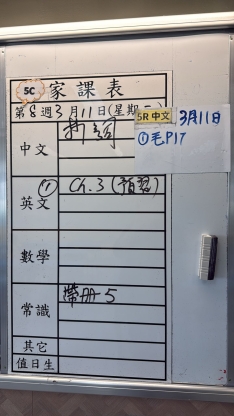 5C 家課表
第8週3月11日(星期二)
5R 中文 3月11日
① 毛P17
中文
英文 ① Ch.3 (預習)
數學
常識 帶冊5
其它
值日生